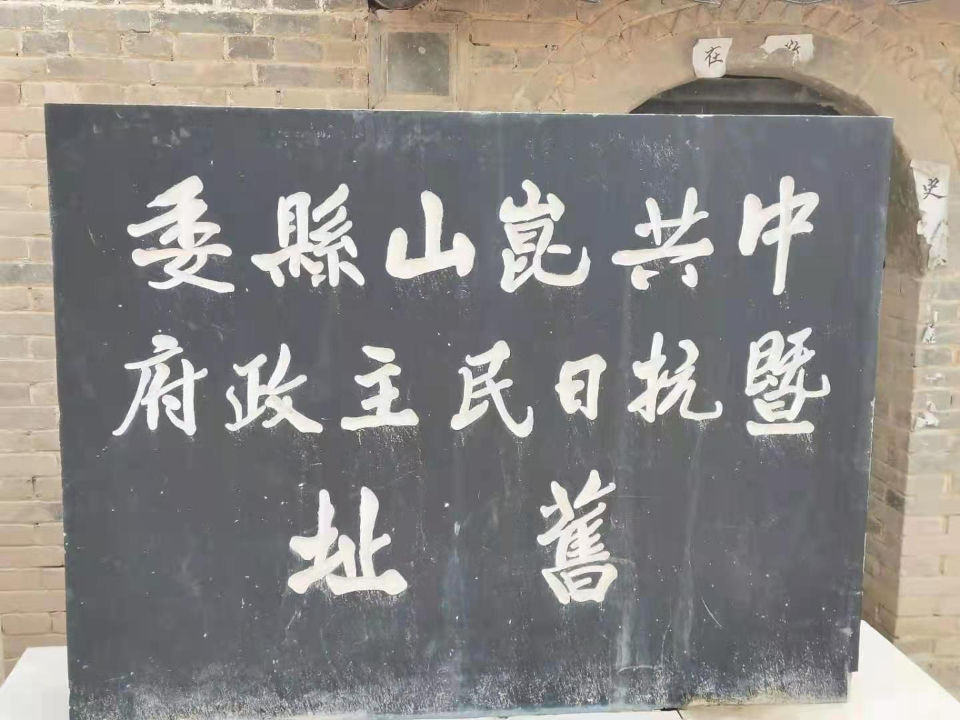 中共崑山縣委
暨抗日民主政府
舊址
在
史